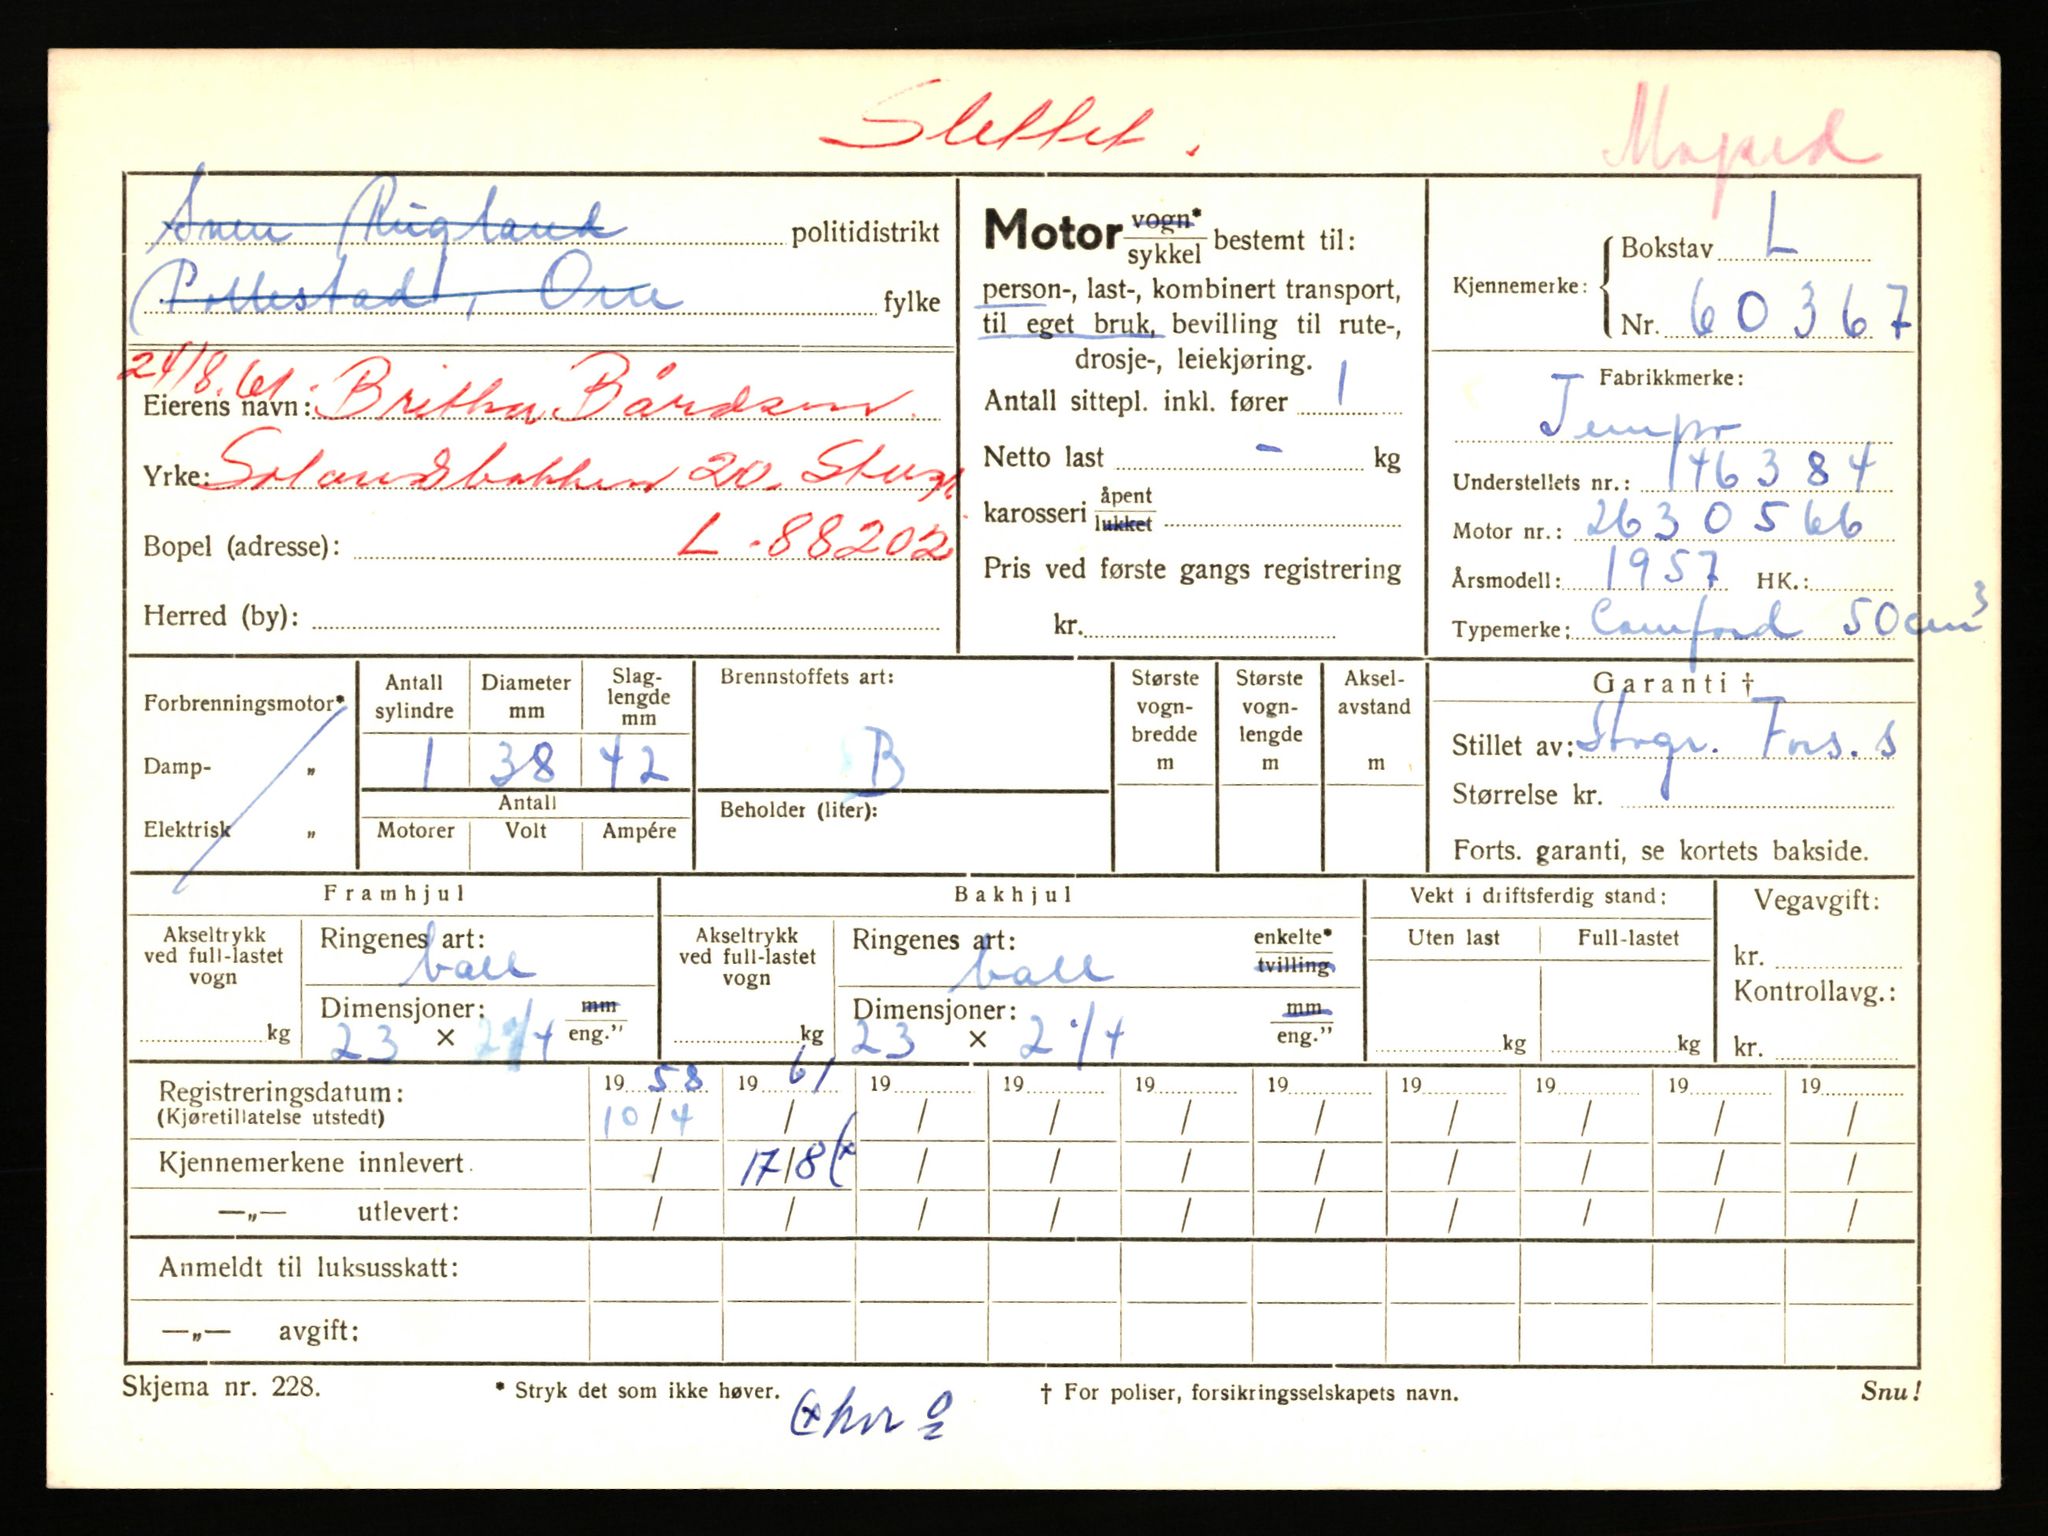 Slettet.
Moped
Sven Rugland politidistrikt
Pollestad, Orre fylke
24/8.61.
Eierens navn: Britha Bårdsen.
Yrke: Solandsbakken 20.
Bopel (adresse): L.-88202
Herred (by):
Motor vogn* / sykkel bestemt til:
person-, last-, kombinert transport,
til eget bruk, bevilling til rute-,
drosje-, leiekjøring.
Antall sittepl. inkl. fører 1
Netto last - kg
karosseri åpent / lukket
Pris ved første gangs registrering
kr.
Kjennemerke: Bokstav L
Nr. 60367
Fabrikkmerke:
Tempo
Understellets nr.: 146384
Motor nr.: 2630566
Årsmodell: 1957 HK.:
Typemerke: Comford 50cm³
Forbrenningsmotor*
Damp- „
Elektrisk „
Antall sylindre Diameter mm Slag-lengde mm
1 38 42
Antall
Motorer Volt Ampére
Brennstoffets art:
B
Beholder (liter):
Største vogn-bredde m
Største vogn-lengde m
Aksel-avstand m
Garanti †
Stillet av: Storgr. Fors. s
Størrelse kr.
Forts. garanti, se kortets bakside.
Framhjul
Akseltrykk ved full-lastet vogn
kg
Ringenes art:
ball
Dimensjoner: mm / eng.”
23 × 2 1/4
Bakhjul
Akseltrykk ved full-lastet vogn
kg
Ringenes art: enkelte* / tvilling
ball
Dimensjoner: mm / eng.”
23 × 2 1/4
Vekt i driftsferdig stand:
Uten last Full-lastet
kg kg
Vegavgift:
kr.
Kontrollavg.:
kr.
Registreringsdatum: 1958 1961 19 19 19 19 19 19 19 19
(Kjøretillatelse utstedt) 10/4 / / / / / / / / /
Kjennemerkene innlevert. / 17/8 (x / / / / / / / /
—„— utlevert: / / / / / / / / / /
Anmeldt til luksusskatt:
—„— avgift:
Skjema nr. 228. * Stryk det som ikke høver. † For poliser, forsikringsselskapets navn. Snu!